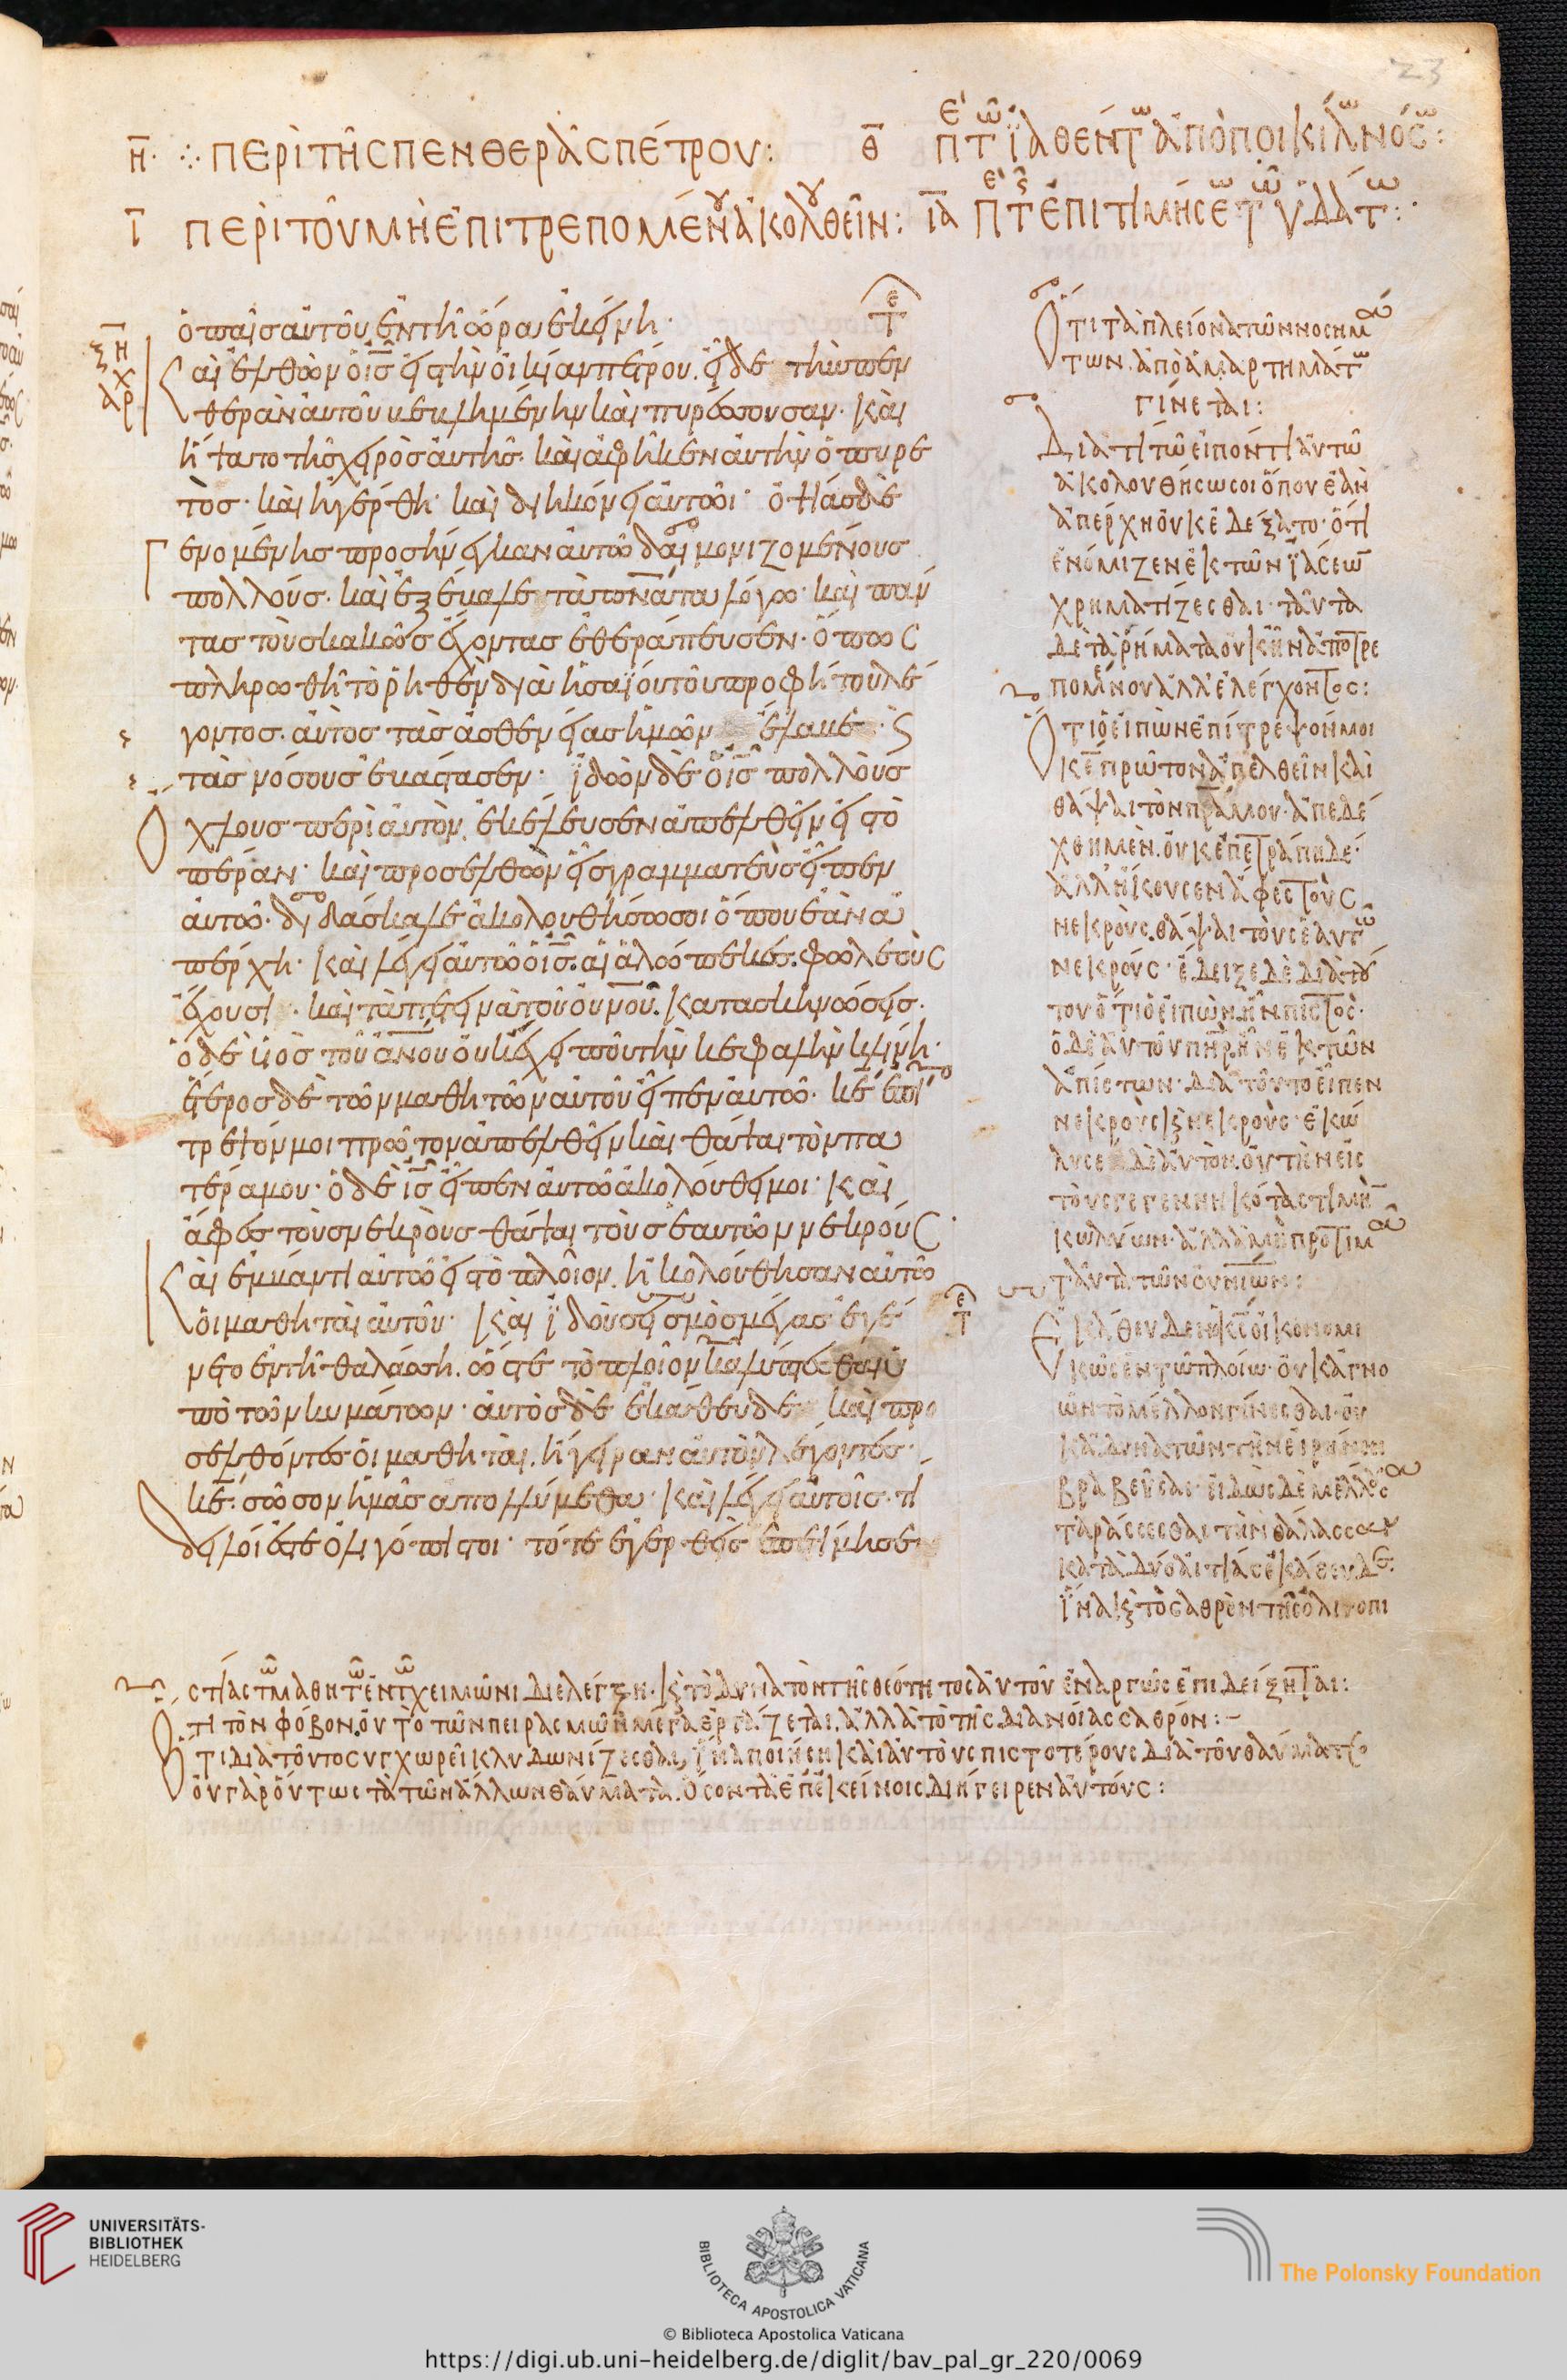 23
η· ∴ περὶ τῆς πενθερᾶς πέτρου:
θ πτ ἰαθέντ ἀπὸ ποικίλ νόσ:
ι περὶ τοῦ μὴ ἐπιτρεπομένου ἀκολουθεῖν:
ια π τ ἐπιτιμήσε τ ὑδάτ:
ὁ παῖς αὐτοῦ ἐν τῆ ὥρα ἐκείνη·
καὶ ἐλθὼν ὁ ις εἰς τὴν οἰκίαν πέτρου. εἶδε τὴν πεν
θερὰν αὐτοῦ βεβλημένην καὶ πυρέσσουσαν· καὶ
ἥψατο τῆς χειρὸς αὐτῆς· καὶ ἀφῆκεν αὐτὴν ὁ πυρε
τός· καὶ ἠγέρθη· καὶ διηκόνει αὐτῶι· ὀψίας δὲ
γενομένης προσήνεγκαν αὐτῶ δαιμονιζομένους
πολλούς· καὶ ἐξέβαλε τὰ πνατα λόγω· καὶ πάν
τας τοὺς κακῶς ἔχοντας ἐθεράπευσεν· ὅπως
πληρωθῆ τὸ ῥηθὲν διὰ ησαΐου τοῦ προφήτου λέ
γοντος· αὐτὸς τὰς ἀσθενείας ἡμῶν ἔλαβε· ϗ
τὰς νόσους ἐβάστασεν· ἰδὼν δὲ ὁ ις πολλοὺς
ὄχλους περὶ αὐτὸν, ἐκέλευσεν ἀπελθεῖν εἰς τὸ
πέραν· καὶ προσελθὼν εἷς γραμματεὺς εἶπεν
αὐτῶ· διδάσκαλε ἀκολουθήσω σοι ὅπου ἐὰν ἀ
πέρχη· καὶ λέγει αὐτῶ ὁ ις· αἱ ἀλώπεκες φωλεοὺς
ἔχουσι· καὶ τὰ πετεινὰ τοῦ ουνου κατασκηνώσεις·
ὁ δὲ υἱὸς τοῦ ανου οὐκ ἔχει ποῦ τὴν κεφαλὴν κλίνη·
ἕτερος δὲ τῶν μαθητῶν αὐτοῦ εἶπεν αὐτῶ· κε ἐπί
τρεψόν μοι πρῶτον ἀπελθεῖν καὶ θάψαι τὸν πα
τέρα μου· ὁ δὲ ις εἶπεν αὐτῶ ἀκολούθει μοι· καὶ
ἄφες τοὺς νεκροὺς θάψαι τοὺς ἑαυτῶν νεκρούς·
καὶ ἐμβάντι αὐτῶ εἰς τὸ πλοῖον, ἠκολούθησαν αὐτῶ
οἱ μαθηταὶ αὐτοῦ· καὶ ἰδοὺ σεισμὸς μέγας ἐγέ
νετο ἐν τῆ θαλάσση. ὥστε τὸ πλοῖον καλύπτεσθαι ὑ
πὸ τῶν κυμάτων· αὐτὸς δὲ ἐκάθευδε καὶ προ
σελθόντες οἱ μαθηταὶ, ἤγειραν αὐτὸν λέγοντες·
κε· σῶσον ἡμᾶς ἀπολλύμεθα· καὶ λέγει αὐτοῖς· τί
δειλοί ἐστε ὀλιγόπιστοι· τότε ἐγερθεὶς ἐπετίμησε
ξη
χ
αρ
Ὅτι τὰ πλείονα τῶν νοσημά
των. ἀπὸ ἁμαρτημάτ
γίνεται:
Διατί τῶ εἰπόντι αὐτῶ
ἀκολουθήσω σοι ὅπου ἐὰν
ἀπέρχη οὐκ ἐδέξατο· ὅτι
ἐνόμιζεν ἐκ τῶν ἰάσεω
χρηματίζεσθαι· ταῦτα
δὲ τὰ ῥήματα οὐκ ἦν ἀποτρε
πομένου ἀλλ' ἐλέγχοντος:
Ὅτι ὁ εἰπὼν ἐπίτρεψόν μοι
κε πρῶτον ἀπελθεῖν καὶ
θάψαι τὸν πρα μου· ἀπεδέ
χθη μὲν. οὐκ ἐπετράπη δέ·
ἀλλ' ἤκουσεν ἄφες τοὺς
νεκροὺς θάψαι τοὺς ἑαυτ
νεκρούς· ἔδειξε δὲ διὰ τού
του ὅτι ὁ εἰπὼν ἦν πιστός·
ὁ δὲ αὐτοῦ πηρ ἦν ἐκ τῶν
ἀπίστων· διὰ τοῦτο εἶπεν
νεκροὺς ϗ νεκρούς· ἐκώ
λυσε δὲ αὐτὸν. οὐ τὴν εἰς
τοὺς γεγεννηκότας τιμὴ
κωλύων· ἀλλὰ μὴ προτιμᾶ
ταῦτα τῶν ουνιων:
Ἐκάθευδεν ὁ κς οἰκονομι
κῶς ἐν τῶ πλοίω· οὐκ ἀγνο
ῶν τὸ μέλλον γίνεσθαι· οὐ
κ ἀδυνατῶν τὴν εἰρήνην
βραβεῦσαι· εἰδὼς δὲ μέλλ
ταράσσεσθαι τὴν θάλασσα
κατὰ δύο αἰτίας ἐκάθευδε
ἵνα ϗ τὸ σαθρὸν τῆς ὀλιγοπι
στίας τ μαθητ ἐν τ χειμῶνι διελέγξη· ϗ τὸ δυνατὸν τῆς θεότητος αὐτοῦ ἐναργῶς ἐπιδείξηται:
Ὅτι τὸν φόβον. οὐ τὸ τῶν πειρασμῶν μέγα ἐργάζεται, ἀλλὰ τὸ τῆς διανοίας σαθρόν:–
Ὅτι διὰ τοῦτο συγχωρεῖ κλυδωνίζεσθαι, ἵνα ποιήση καὶ αὐτοὺς πιστοτέρους διὰ τοῦ θαύματος
οὐ γὰρ οὕτως τὰ τῶν ἄλλων θαύματα. ὅσον τὰ ἐπ' ἐκείνοις διήγειρεν αὐτούς:
UNIVERSITÄTS-
BIBLIOTHEK
HEIDELBERG
BIBLIOTECA APOSTOLICA VATICANA
The Polonsky Foundation
© Biblioteca Apostolica Vaticana
https://digi.ub.uni-heidelberg.de/diglit/bav_pal_gr_220/0069